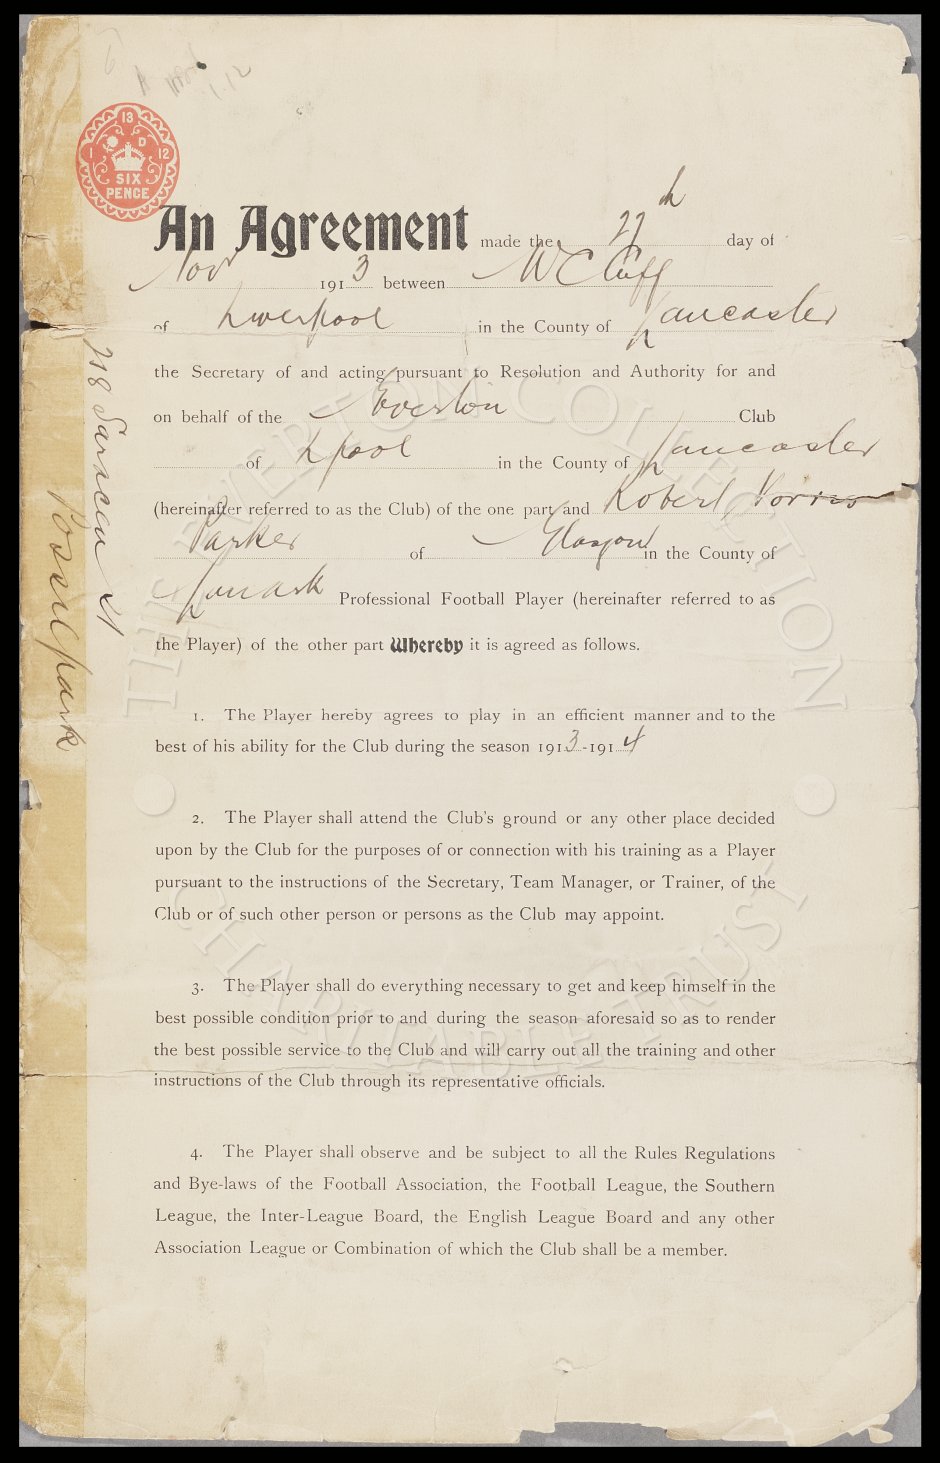 13
1 D 12
SIX
PENCE
An Agreement made the 27th day of
Novr 1913 between W C Cuff
of Liverpool in the County of Lancaster
the Secretary of and acting pursuant to Resolution and Authority for and
on behalf of the Everton Club
of Lpool in the County of Lancaster
(hereinafter referred to as the Club) of the one part and Robert Norris
Parker of Glasgow in the County of
Lanark Professional Football Player (hereinafter referred to as
the Player) of the other part Whereby it is agreed as follows.
1. The Player hereby agrees to play in an efficient manner and to the
best of his ability for the Club during the season 1913-1914
2. The Player shall attend the Club's ground or any other place decided
upon by the Club for the purposes of or connection with his training as a Player
pursuant to the instructions of the Secretary, Team Manager, or Trainer, of the
Club or of such other person or persons as the Club may appoint.
3. The Player shall do everything necessary to get and keep himself in the
best possible condition prior to and during the season aforesaid so as to render
the best possible service to the Club and will carry out all the training and other
instructions of the Club through its representative officials.
4. The Player shall observe and be subject to all the Rules Regulations
and Bye-laws of the Football Association, the Football League, the Southern
League, the Inter-League Board, the English League Board and any other
Association League or Combination of which the Club shall be a member.
218 Saracen St
Possilpark
THE EVERTON COLLECTION
CHARITABLE TRUST